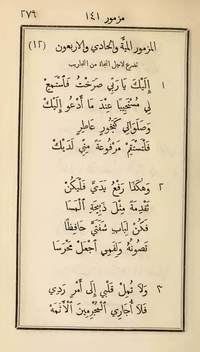 مزمور ١٤١ ٢٧٦
المزمور المئة والحادي والاربعون (١٢)
تضرع لاجل النجاة من التجارب
١ إِلَيْكَ يَا رَبِّي صَرَخْتُ فَاسْتَمِعْ
لِي مُسْتَجِيبًا عِنْدَ مَا أَدْعُو إِلَيْكْ
وَصَلَوَاتِي كَبَخُورٍ عَاطِرٍ
فَلْتَسْتَقِمْ مَرْفُوعَةً مِنِّي لَدَيْكْ
٢ وَهٰكَذَا رَفْعُ يَدَيَّ فَلْيَكُنْ
تَقْدِمَةً مِثْلَ ذَبِيحَةِ الْمَسَا
فَكُنْ لِبَابِ شَفَتَيَّ حَافِظًا
تَصُونُهُ وَلِفَمِي اجْعَلْ مَحْرَسَا
٣ وَلَا تُمِلْ قَلْبِي إِلَى أَمْرٍ رَدِي
فَلَا أُجَارِي الْمُجْرِمِينَ الْأَثَمَةْ